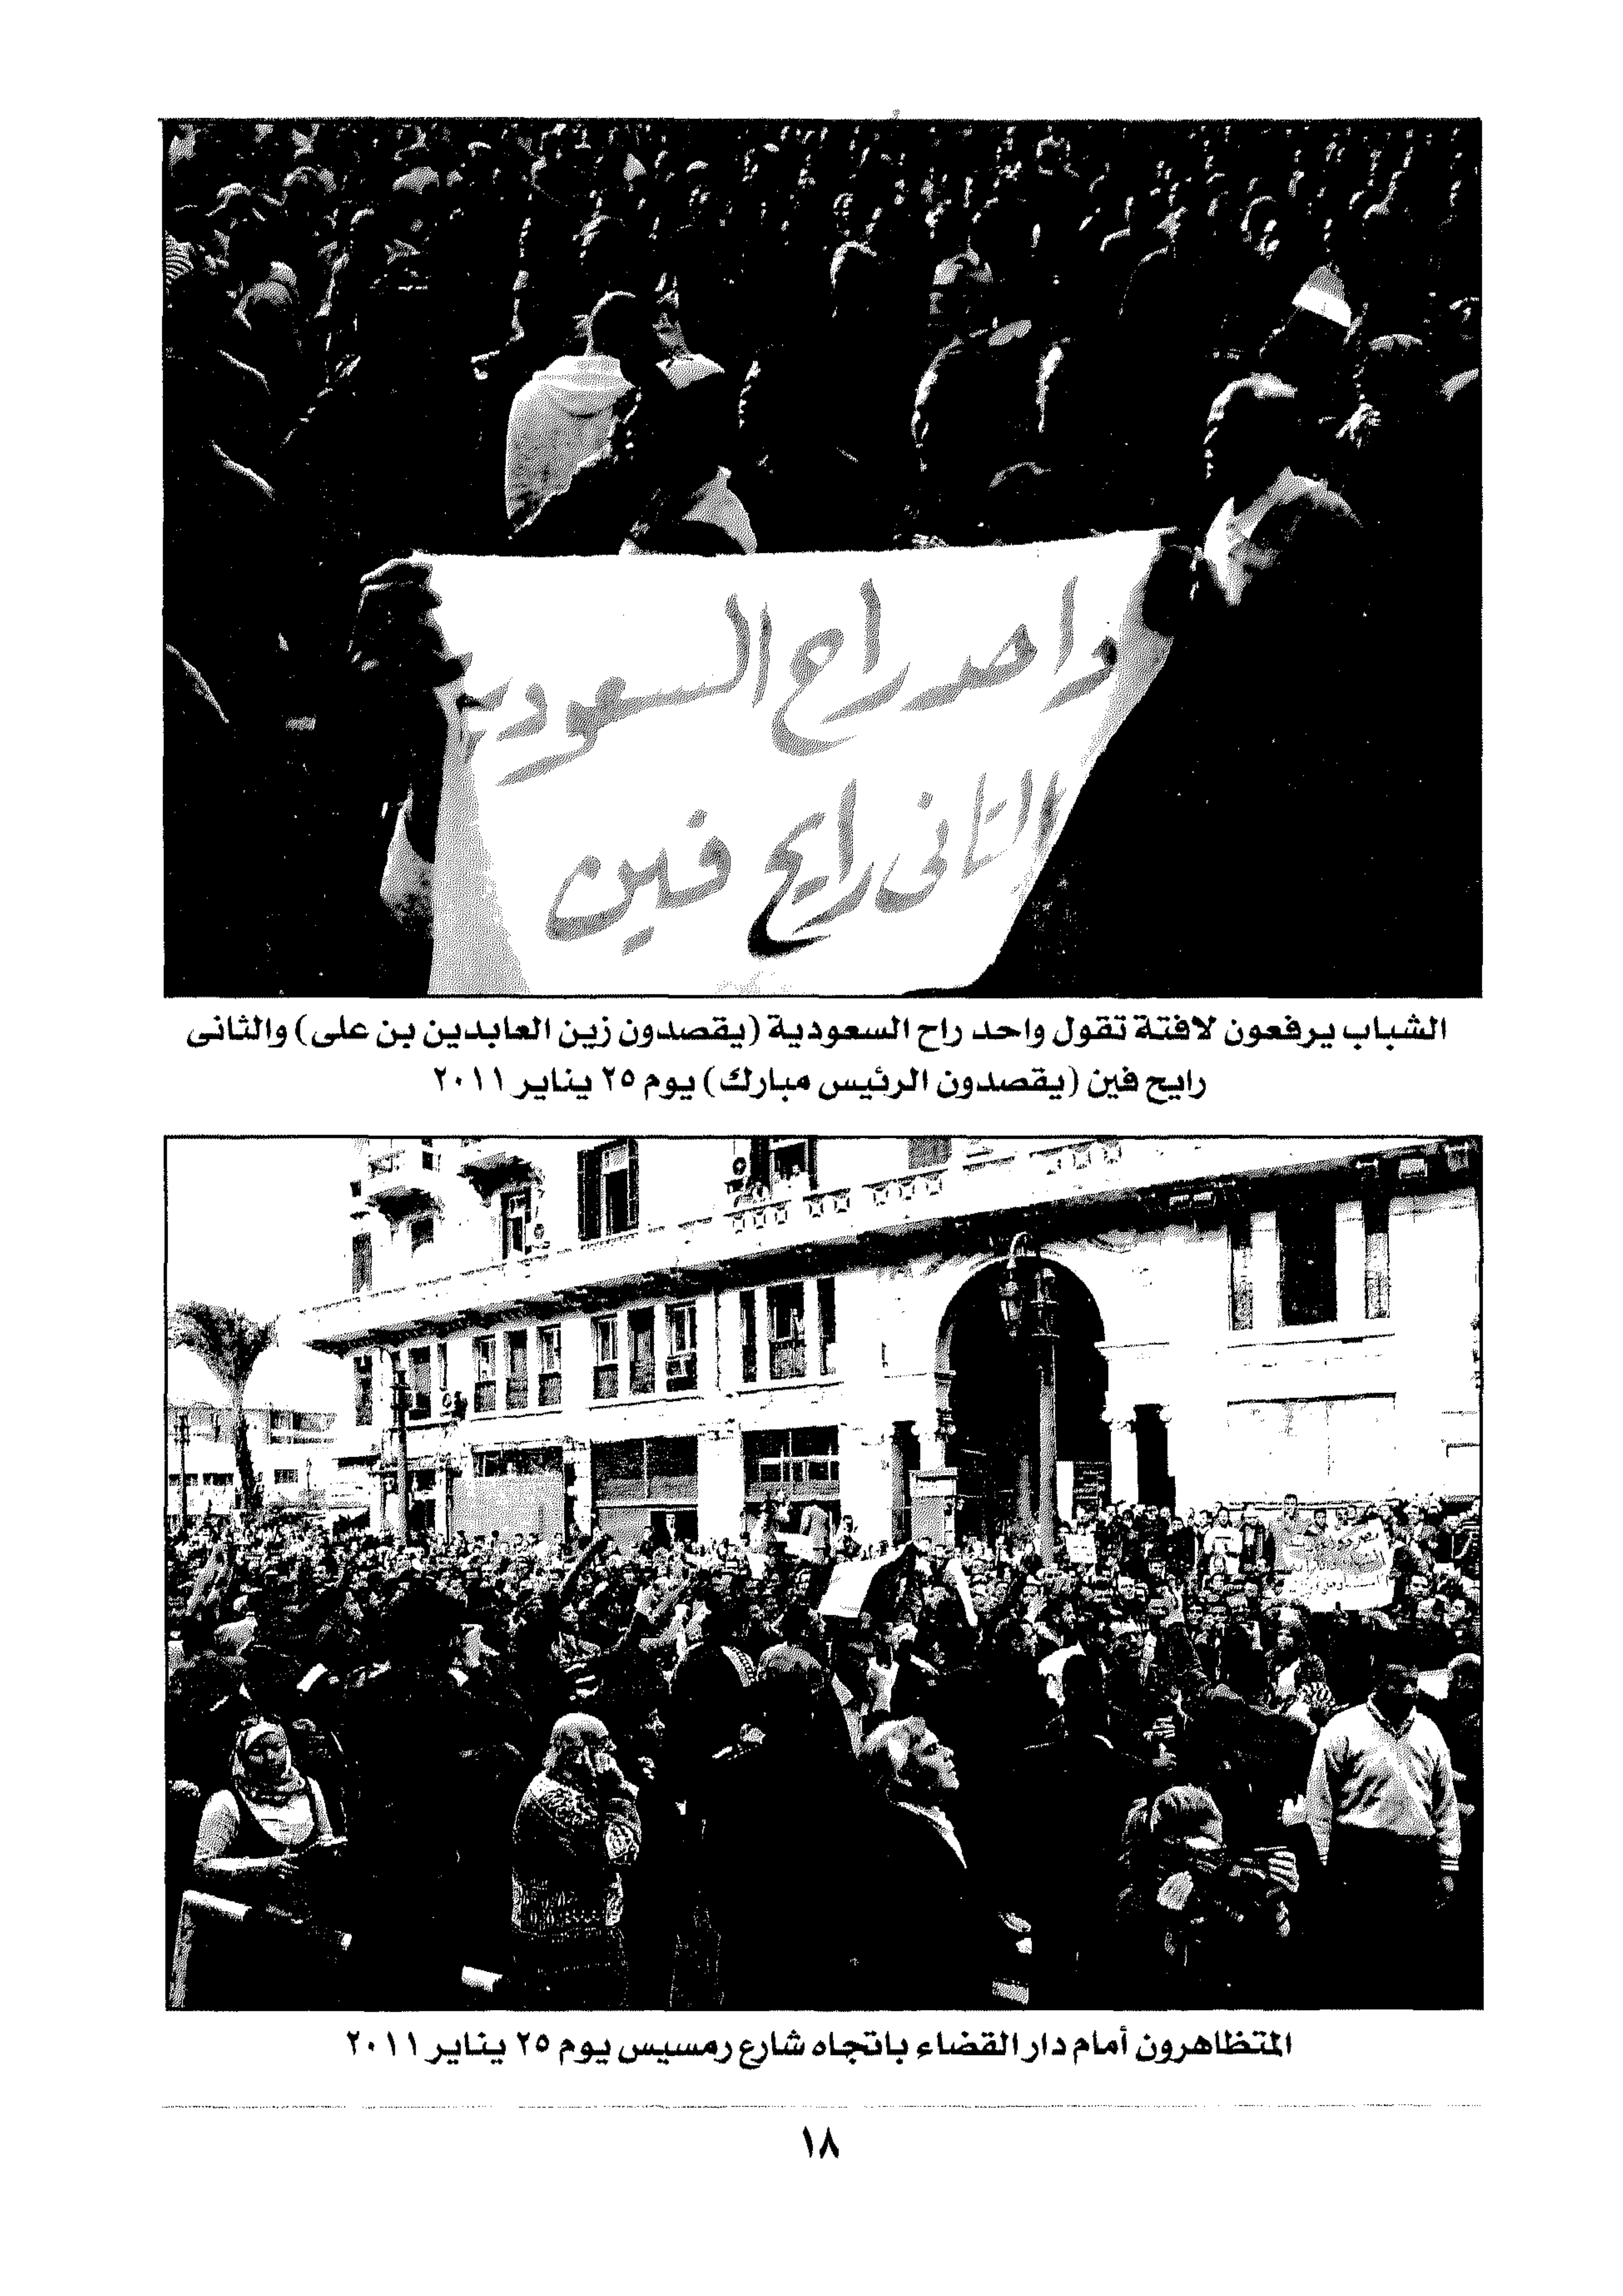 واحد راح السعودية
التانى رايح فين
الشباب يرفعون لافتة تقول واحد راح السعودية (يقصدون زين العابدين بن على) والثانى
رايح فين (يقصدون الرئيس مبارك) يوم ٢٥ يناير ٢٠١١
المتظاهرون أمام دار القضاء باتجاه شارع رمسيس يوم ٢٥ يناير ٢٠١١
١٨